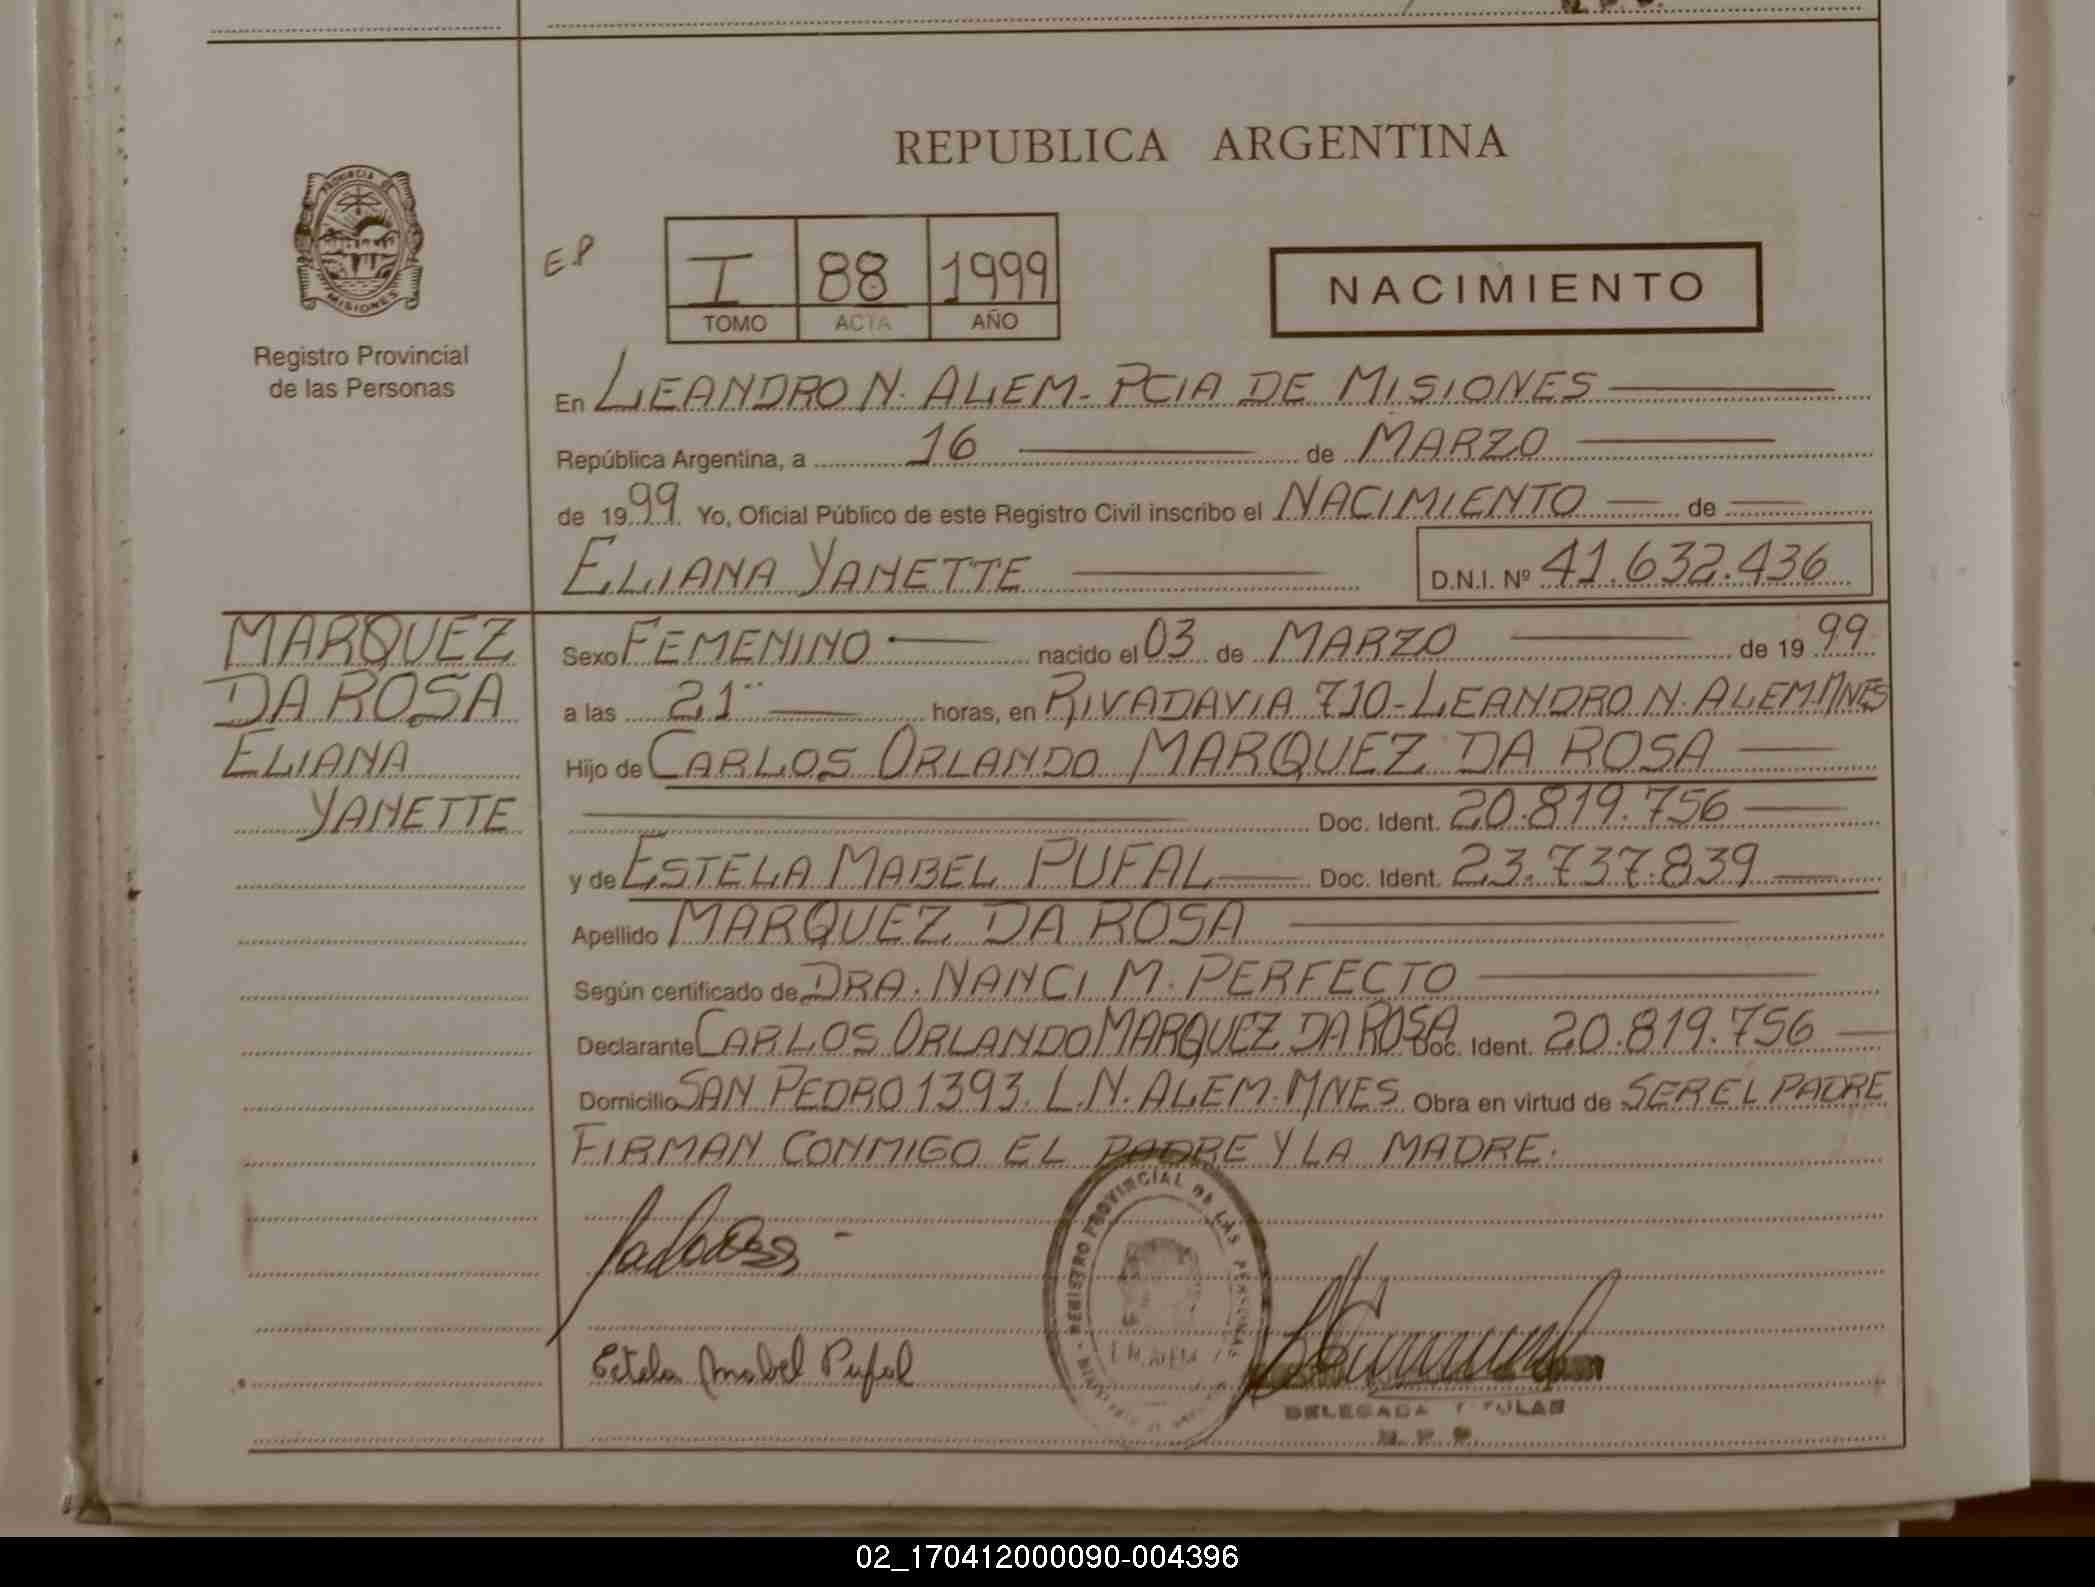 REPUBLICA ARGENTINA
PROVINCIA DE
MISIONES
Registro Provincial
de las Personas
EP
I 88 1999
TOMO ACTA AÑO
NACIMIENTO
En LEANDRO N. ALEM - PCIA DE MISIONES
República Argentina, a 16 de MARZO
de 1999 Yo, Oficial Público de este Registro Civil inscribo el NACIMIENTO de
ELIANA YANETTE D.N.I. Nº 41.632.436
MARQUEZ
DA ROSA
ELIANA
YANETTE
Sexo FEMENINO nacido el 03 de MARZO de 1999
a las 21 horas, en RIVADAVIA 710 - LEANDRO N. ALEM. MNES
Hijo de CARLOS ORLANDO MARQUEZ DA ROSA
Doc. Ident. 20.819.756
y de ESTELA MABEL PUFAL Doc. Ident. 23.737.839
Apellido MARQUEZ DA ROSA
Según certificado de DRA. NANCI M. PERFECTO
Declarante CARLOS ORLANDO MARQUEZ DA ROSA Doc. Ident. 20.819.756
Domicilio SAN PEDRO 1393. L.N. ALEM. MNES Obra en virtud de SER EL PADRE
FIRMAN CONMIGO EL PADRE Y LA MADRE.
REGISTRO PROVINCIAL DE LAS PERSONAS
Estela Mabel Pufal
DELEGADA TITULAR
02_170412000090-004396